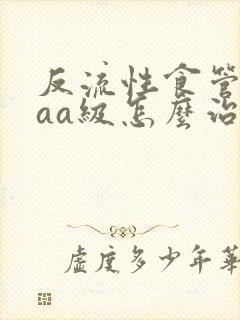 反流性食管
aa級怎麼治
虛度多少年華